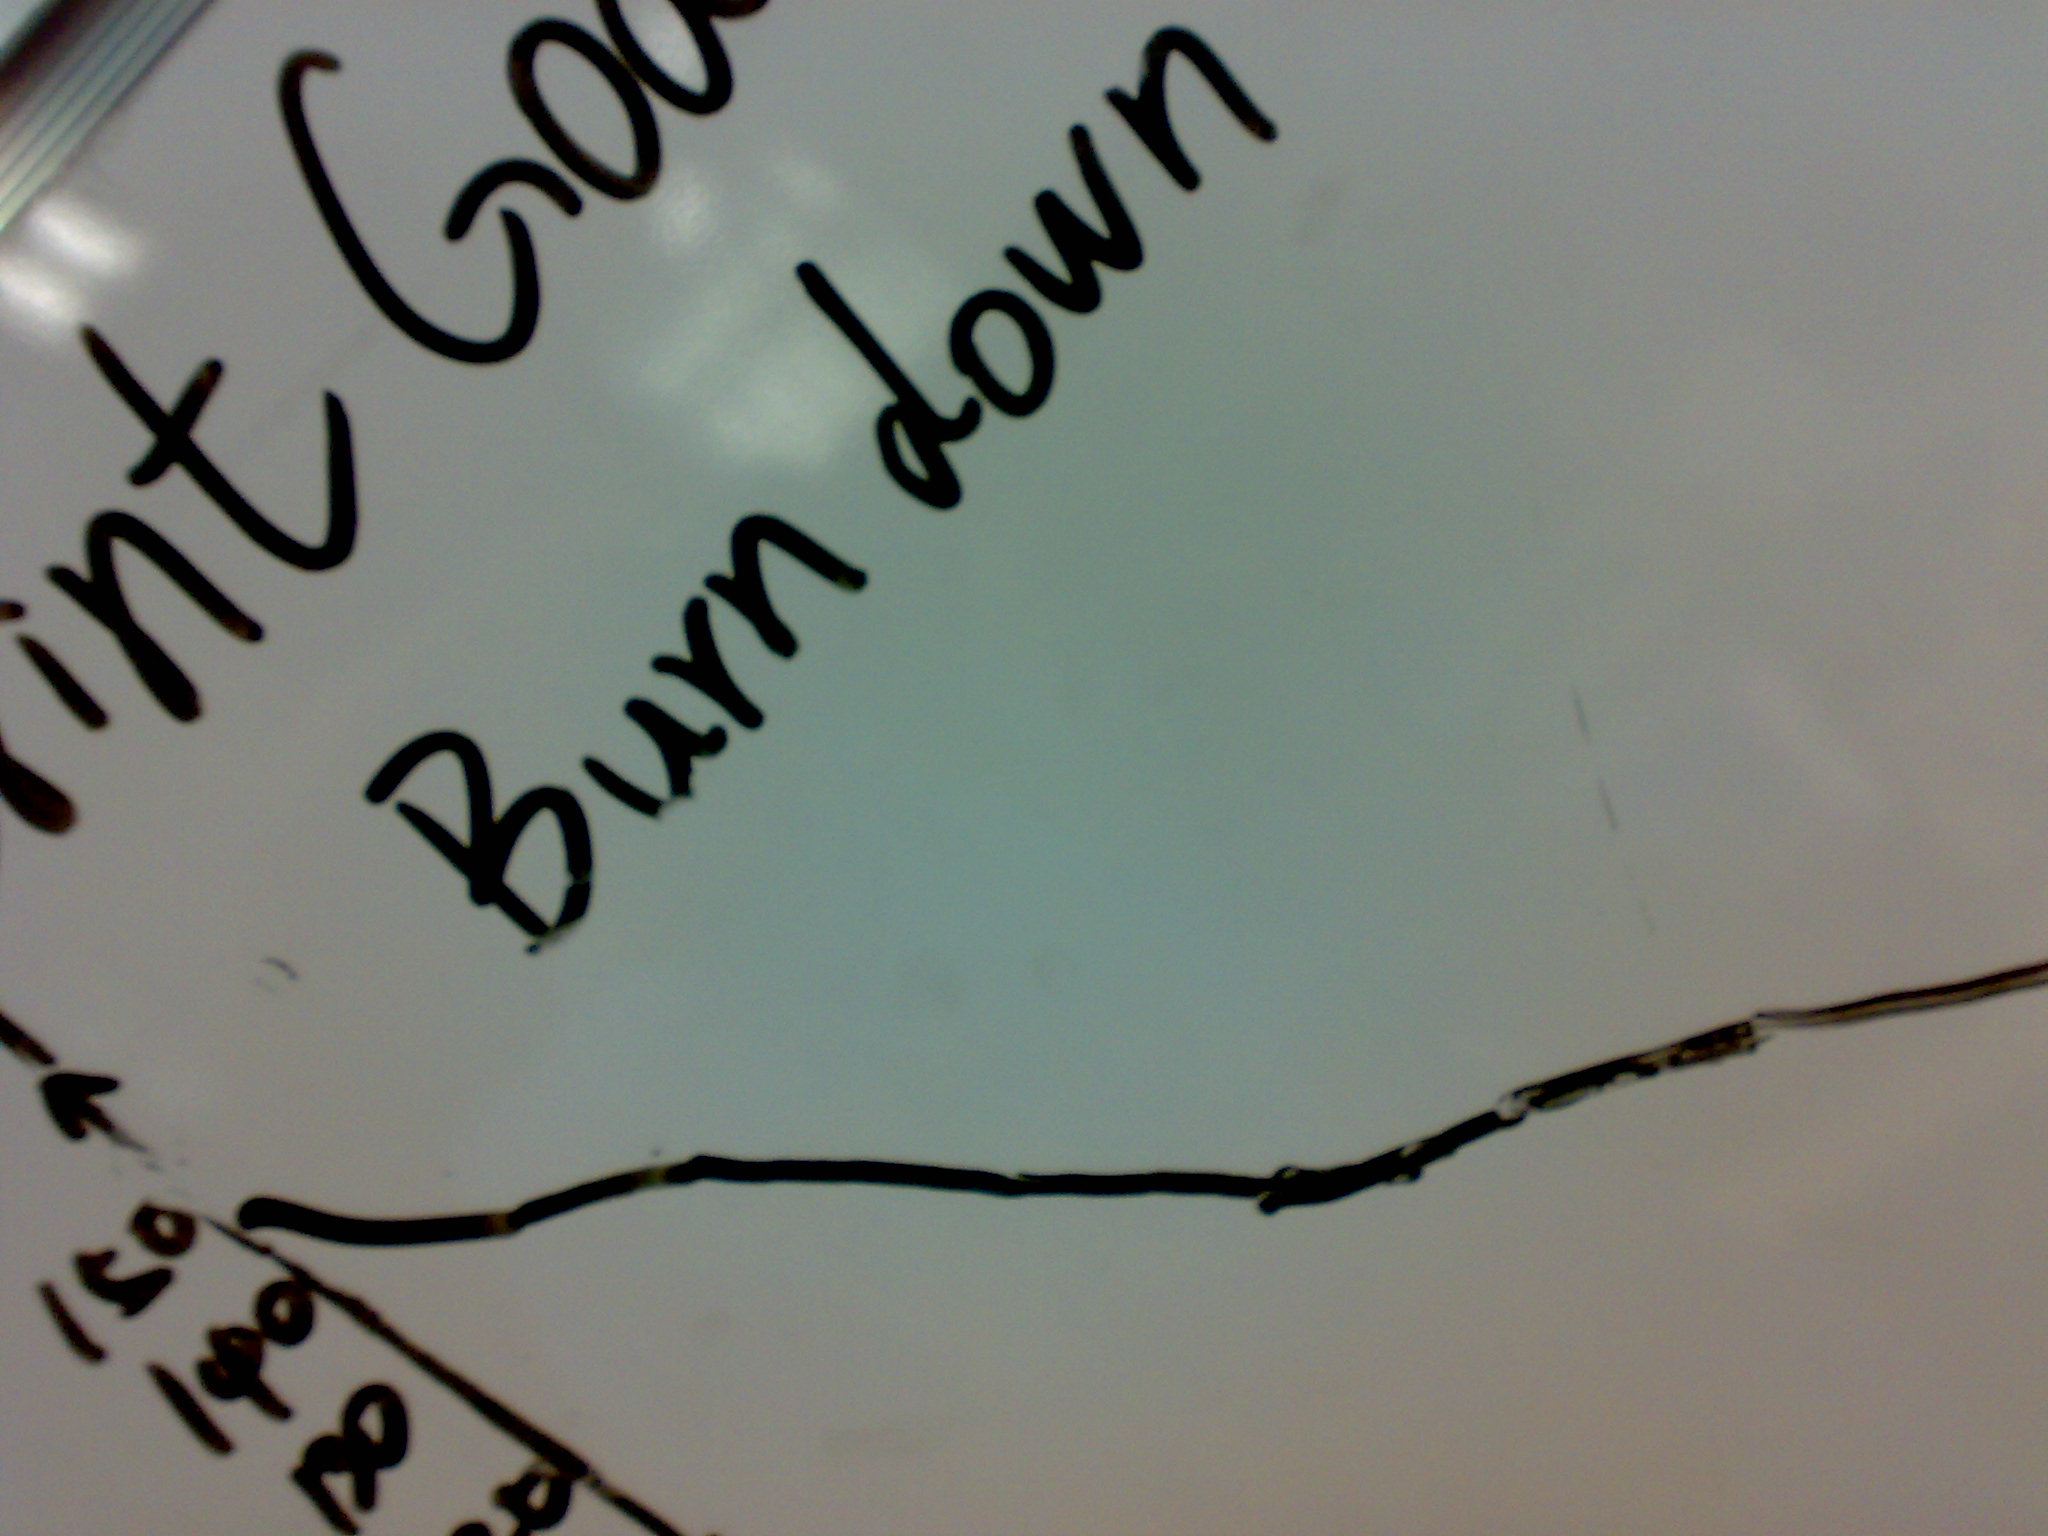 int Goa
Burn down
150
140